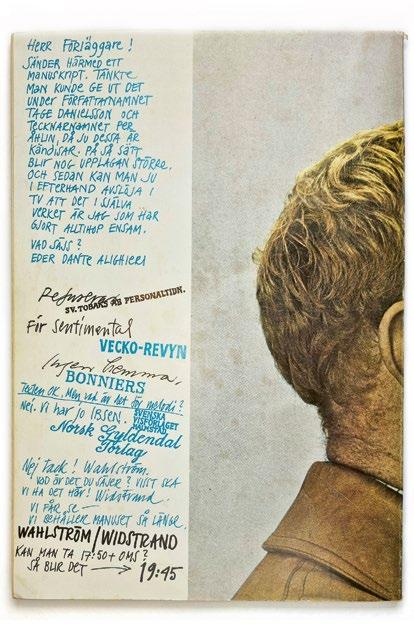 HERR FÖRLÄGGARE!
SÄNDER HÄRMED ETT
MANUSKRIPT. TÄNKTE
MAN KUNDE GE UT DET
UNDER FÖRFATTARNAMNET
TAGE DANIELSSON OCH
TECKNARNAMNET PER
ÅHLIN, DÅ JU DESSA ÄR
KÄNDISAR. PÅ SÅ SÄTT
BLIR NOG UPPLAGAN STÖRRE,
OCH SEDAN KAN MAN JU
I EFTERHAND AVSLÖJA I
TV ATT DET I SJÄLVA
VERKET ÄR JAG SOM HAR
GJORT ALLTIHOP ENSAM.
VAD SÄJS?
EDER DANTE ALIGHIERI
Refuseras
SV. TOBAKS AB PERSONALTIDN.
För sentimental
VECKO-REVYN
Ingen hemma.
BONNIERS
Texten OK. Men vad är det för melodi?
SVENSKA
VISFÖRLAGET
Nej. Vi har jo IBSEN.
Norsk Gyldendal
Förlag
Nej tack! Wahlström.
VAD ÄR DET DU SÄJER? VISST SKA
VI HA DET HÄR! Widstrand.
VI FÅR SE –
VI BEHÅLLER MANUSET SÅ LÄNGE.
WAHLSTRÖM/WIDSTRAND
KAN MAN TA 17:50 + OMS?
SÅ BLIR DET → 19:45